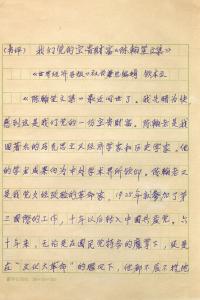 (书评) 我们党的宝贵财富《陈翰笙文集》
《世界经济导报》社付总编辑 钦本立
《陈翰笙文集》最近问世了。我先睹为快
感到这是我们党的一份宝贵财富。陈翰老是我
国著名的马克思主义经济学家和历史学家。他
的学术成果向为中外学术界所钦仰。陈翰老又
是我党久经考验的革命家，1925年就参加了第
三国际的工作，十年以后转入中国共产党。六
十年来，无论是在国民党特务的魔掌下，或是
在“文化大革命”的腥风下，他都不屈不挠地